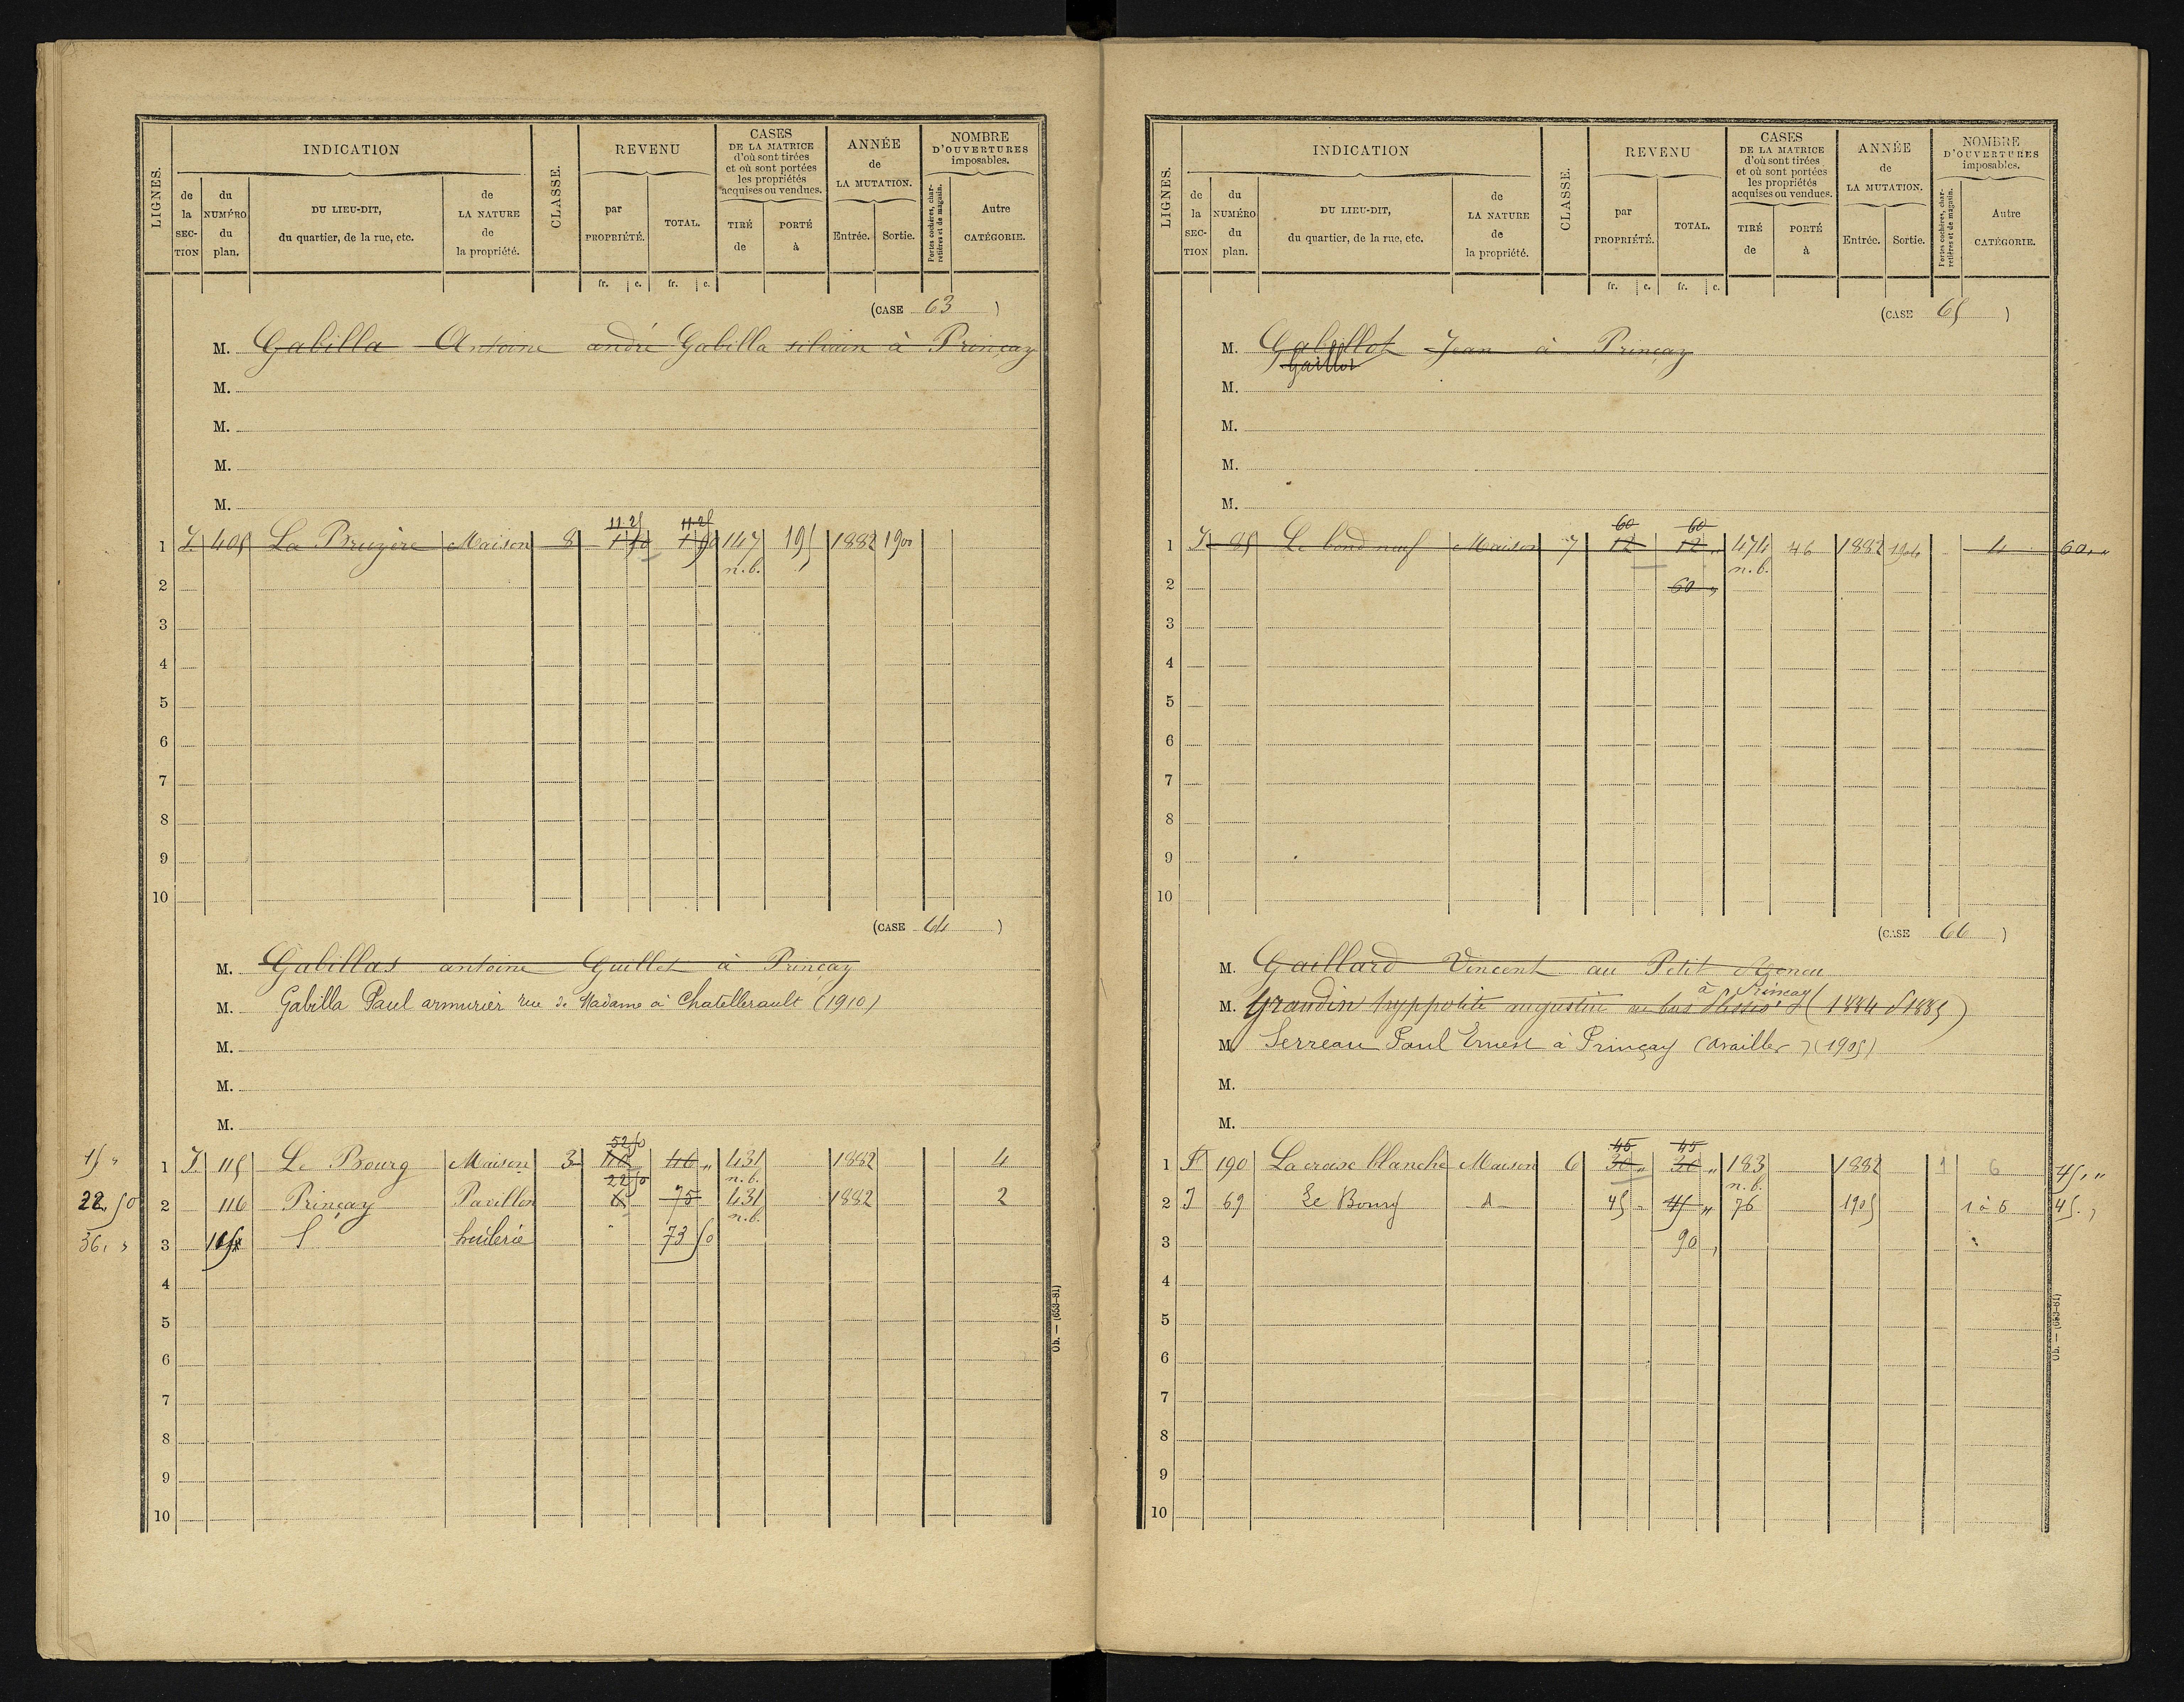 LIGNES.
INDICATION
de la SECTION
du NUMÉRO du plan.
DU LIEU-DIT, du quartier, de la rue, etc.
de LA NATURE de la propriété.
CLASSE.
REVENU
par PROPRIÉTÉ.
TOTAL.
CASES DE LA MATRICE d'où sont tirées et où sont portées les propriétés acquises ou vendues.
TIRÉ de
PORTÉ à
ANNÉE de LA MUTATION.
Entrée.
Sortie.
NOMBRE D'OUVERTURES imposables.
Portes cochères, charretières et de magasin.
Autre CATÉGORIE.
fr. c. fr. c.
(CASE 63 )
M. Gabilla Antoine andré Gabilla silvain à Prinçay
M.
M.
M.
M.
11 25 11 25
1 405 La Bruyère Maison 8 147 195 1882 1900
n.b.
2
3
4
5
6
7
8
9
10
(CASE 64 )
M. Gabillas antoine Guillet à Prinçay
M. Gabilla Paul armurier rue de Madame à Chatellerault (1910)
M.
M.
M.
52 50
15 " 1 J 115 Le Bourg Maison 3 40 " 431 1882 4
22 50 n.b.
22 50 2 116 Prinçay Pavillon 75 431 1882 2
n.b.
36, " 3 huilerie 73 50
4
5
6
7
8
9
10
Ob. — (653-81)
LIGNES.
INDICATION
de la SECTION
du NUMÉRO du plan.
DU LIEU-DIT, du quartier, de la rue, etc.
de LA NATURE de la propriété.
CLASSE.
REVENU
par PROPRIÉTÉ.
TOTAL.
CASES DE LA MATRICE d'où sont tirées et où sont portées les propriétés acquises ou vendues.
TIRÉ de
PORTÉ à
ANNÉE de LA MUTATION.
Entrée.
Sortie.
NOMBRE D'OUVERTURES imposables.
Portes cochères, charretières et de magasin.
Autre CATÉGORIE.
fr. c. fr. c.
(CASE 65 )
M. Gabillot Jean à Prinçay
Gaillot
M.
M.
M.
M.
60 60
1 J 85 Maison 7 12 12 " 474 46 1882 1904 4 60, "
n.b.
2 60 "
3
4
5
6
7
8
9
10
(CASE 66 )
M. Gaillard Vincent au Petit
à Prinçay
M. Grandin hyppolite augustin au bas (1884 1885)
M. Serreau Paul Ernest à Prinçay (availles) (1905)
M.
M.
45 45
1 190 La croix blanche Maison 6 30 " 30 " 183 1882 1 6 45, "
n.b.
2 J 69 Le Bourg 45 " 45 " 76 1905 1 à 5 45. ,
3 90 ,
4
5
6
7
8
9
10
Ob. — (653-81)